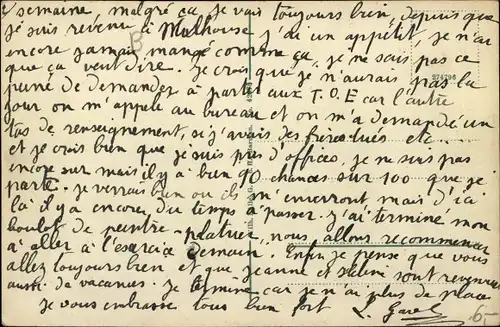 semaine malgré ça, je vais toujours bien, depuis que
je suis revenu à Mulhouse j'ai un appétit, je n'ai
encore jamais mangé comme ça, je ne sais pas ce
que ça veut dire. je crois que je n'aurais pas la
274796
peine de demander à partir aux T.O.E car l'autre
jour on m'appele au bureau et on m'a demandé un
tas de renseignement, si j'avais des frères tués etc...
et je crois bien que je suis pris d'offices, je ne suis pas
encore sur mais il y a bien 90 chances sur 100 que je
parte. je verrais bien ou ils m'enverront mais d'ici
là il y a encore du temps à passer. j'ai terminé mon
boulot de peintre-platrier, nous allons recommencer
à aller à l'exercice demain. Enfin je pense que vous
allez toujours bien et que Jeanne et sont revenues
aussi de vacances. je termine car je n'ai plus de place
je vous embrasse tous bien fort